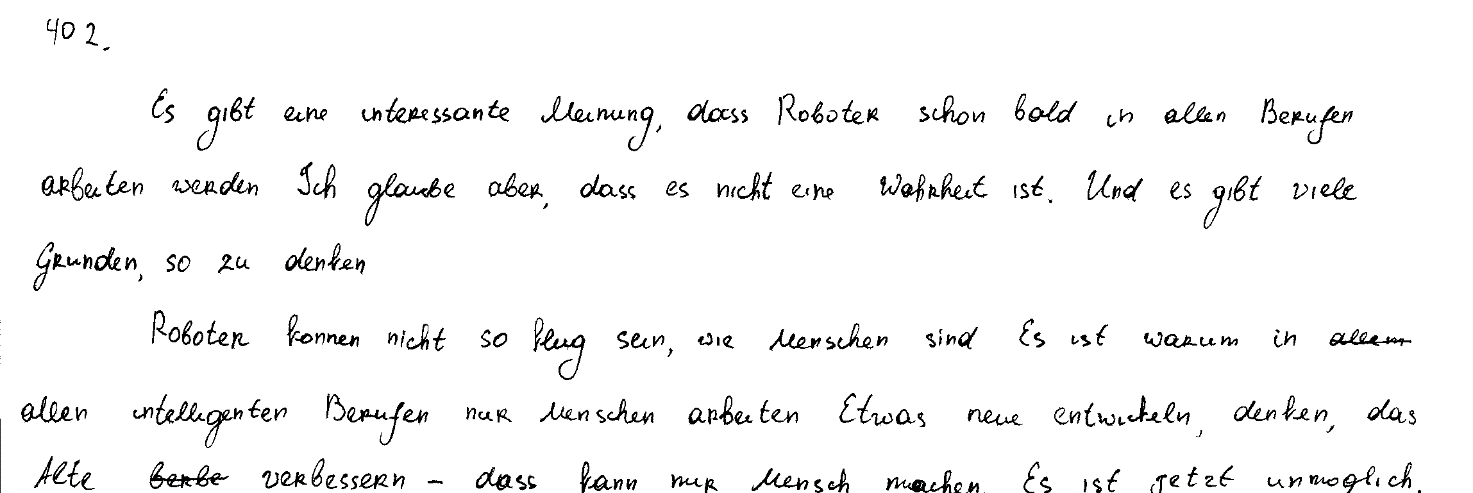 40 2.
Es gibt eine interessante Meinung, dass Roboter schon bald in allen Berufen
arbeiten werden Ich glaube aber, dass es nicht eine Wahrheit ist. Und es gibt viele
Grunden, so zu denken
Roboter konnen nicht so klug sein, wie Menschen sind Es ist warum in allem
allen intelligenten Berufen nur Menschen arbeiten Etwas neue entwickeln, denken, das
Alte berbe verbessern – dass kann nur Mensch machen Es ist jetzt unmoglich.